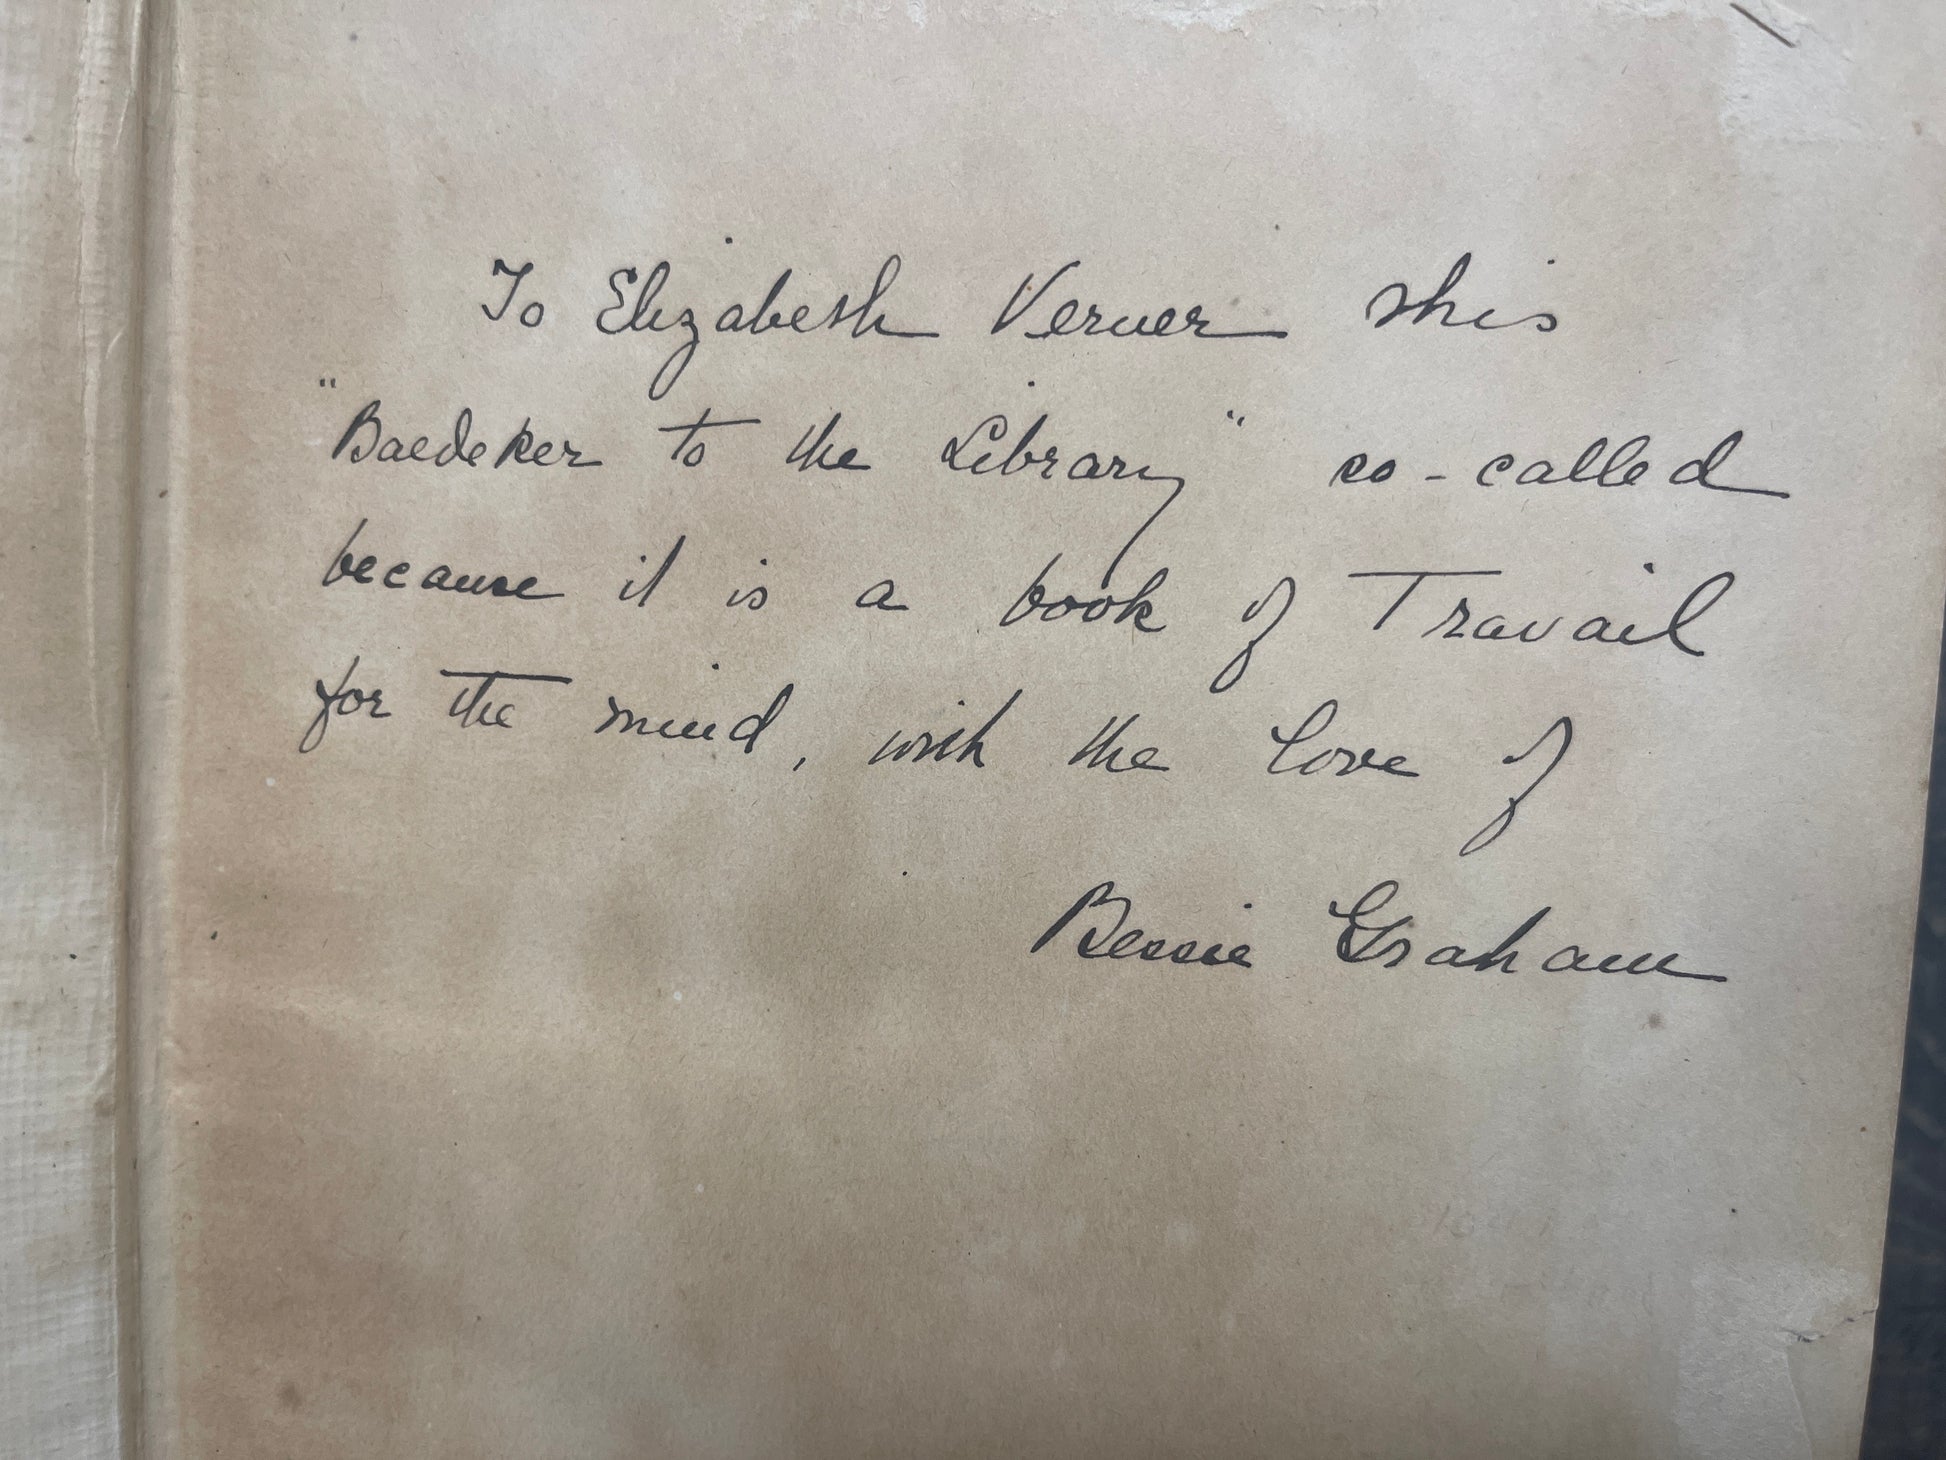 To Elizabeth Verner this
"Baedeker to the Library" so-called
because it is a book of Travail
for the mind, with the love of
Bessie Graham